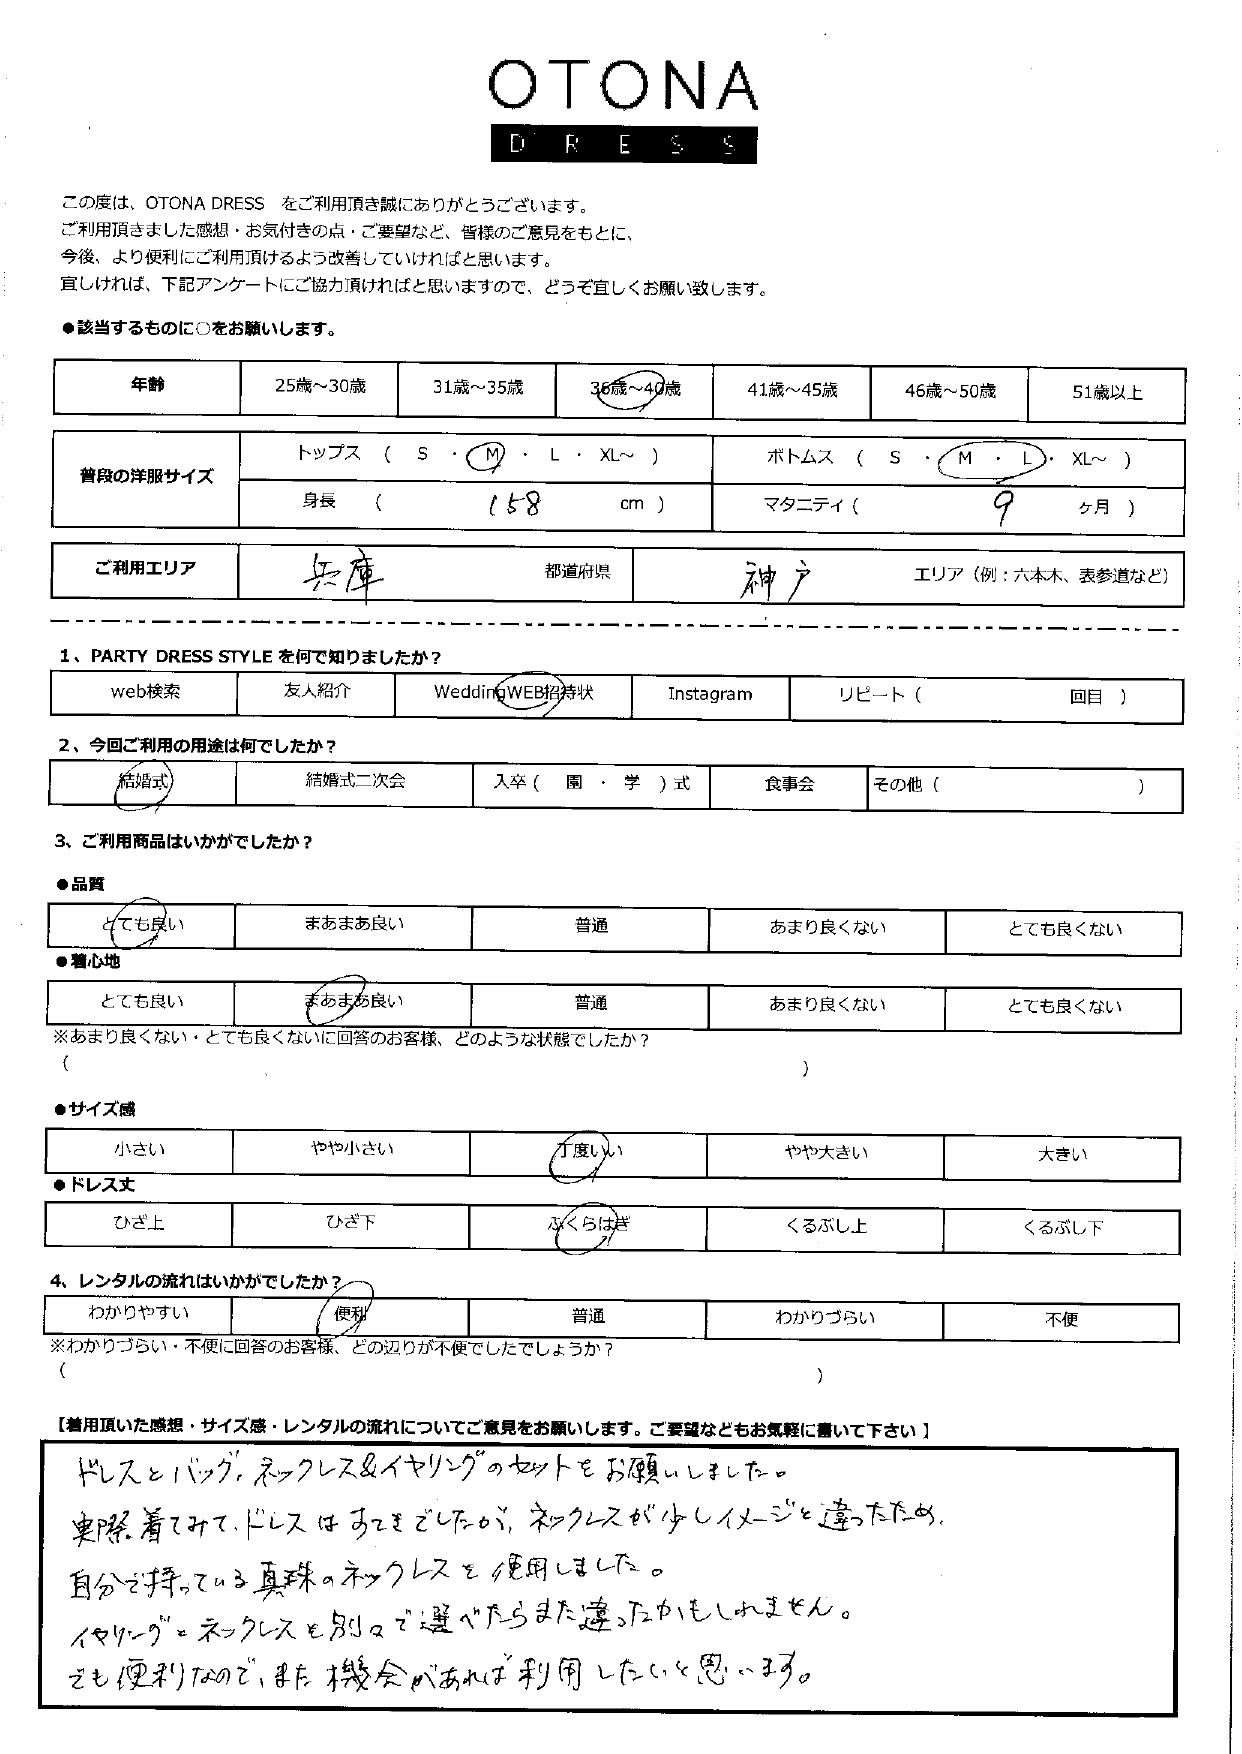 OTONA
DRESS
この度は、OTONA DRESS をご利用頂き誠にありがとうございます。
ご利用頂きました感想・お気付きの点・ご要望など、皆様のご意見をもとに、
今後、より便利にご利用頂けるよう改善していければと思います。
宜しければ、下記アンケートにご協力頂ければと思いますので、どうぞ宜しくお願い致します。
●該当するものに○をお願いします。
年齢 25歳～30歳 31歳～35歳 36歳～40歳 41歳～45歳 46歳～50歳 51歳以上
普段の洋服サイズ トップス ( S ・ M ・ L ・ XL～ ) ボトムス ( S ・ M ・ L ・ XL～ )
身長 ( 158 cm ) マタニティ ( 9 ヶ月 )
ご利用エリア 兵庫 都道府県 神戸 エリア（例：六本木、表参道など）
1、PARTY DRESS STYLE を何で知りましたか？
web検索 友人紹介 WeddingWEB招待状 Instagram リピート ( 回目 )
2、今回ご利用の用途は何でしたか？
結婚式 結婚式二次会 入卒 ( 園 ・ 学 ) 式 食事会 その他 ( )
3、ご利用商品はいかがでしたか？
●品質
とても良い まあまあ良い 普通 あまり良くない とても良くない
●着心地
とても良い まあまあ良い 普通 あまり良くない とても良くない
※あまり良くない・とても良くないに回答のお客様、どのような状態でしたか？
( )
●サイズ感
小さい やや小さい 丁度いい やや大きい 大きい
●ドレス丈
ひざ上 ひざ下 ふくらはぎ くるぶし上 くるぶし下
4、レンタルの流れはいかがでしたか？
わかりやすい 便利 普通 わかりづらい 不便
※わかりづらい・不便に回答のお客様、どの辺りが不便でしたでしょうか？
( )
【着用頂いた感想・サイズ感・レンタルの流れについてご意見をお願いします。ご要望などもお気軽に書いて下さい】
ドレスとバッグ、ネックレス&イヤリングのセットをお願いしました。
実際着てみて、ドレスはすてきでしたが、ネックレスが少しイメージと違ったため、
自分で持っている真珠のネックレスを使用しました。
イヤリングとネックレスを別々で選べたらまた違ったかもしれません。
とても便利なので、また機会があれば利用したいと思います。